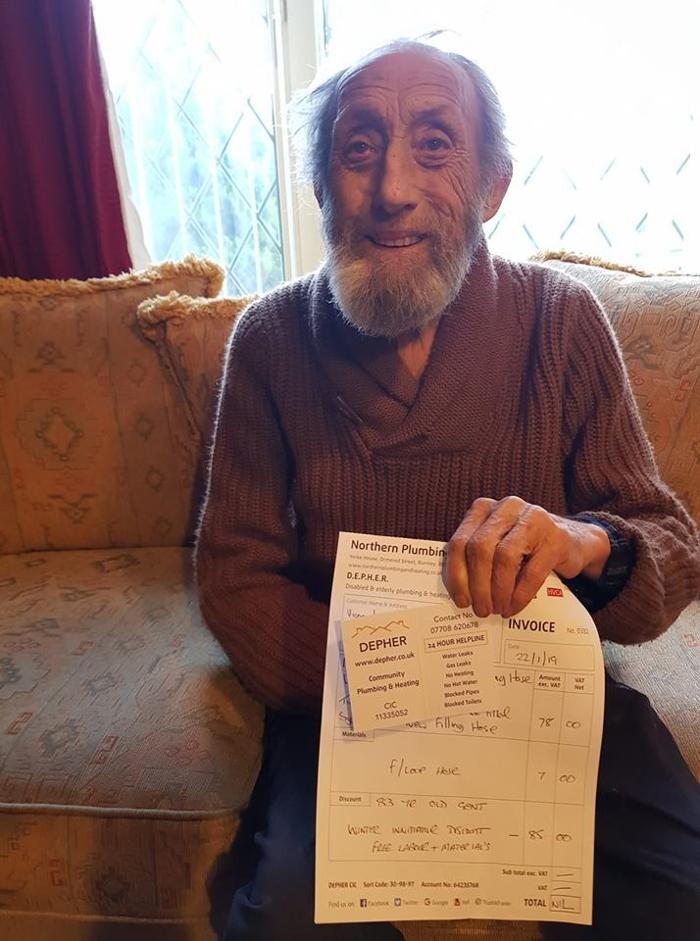 Northern Plumbing
Yorke House, Ormerod Street, Burnley,
www.northernplumbingandheating.co.uk
D.E.P.H.E.R.
Disabled & elderly plumbing & heating
Customer Name & Address
INVOICE
No. 0332
Date:
22/1/19
DEPHER
www.depher.co.uk
Community
Plumbing & Heating
CIC
11335052
Contact No
07708 620678
24 HOUR HELPLINE
Water Leaks
Gas Leaks
No Heating
No Hot Water
Blocked Pipes
Blocked Toilets
Amount exc. VAT
VAT Net
Hose
New Filling Hose 78 00
Materials
F/Loop Hose 7 00
Discount 83 YR OLD GENT
WINTER DISCOUNT - 85 00
FREE LABOUR + MATERIAL'S
Sub total exc. VAT
VAT
DEPHER CIC Sort Code: 30-98-97 Account No: 64235768
Find us on: Facebook Twitter Google yell TrustATrader
TOTAL NIL